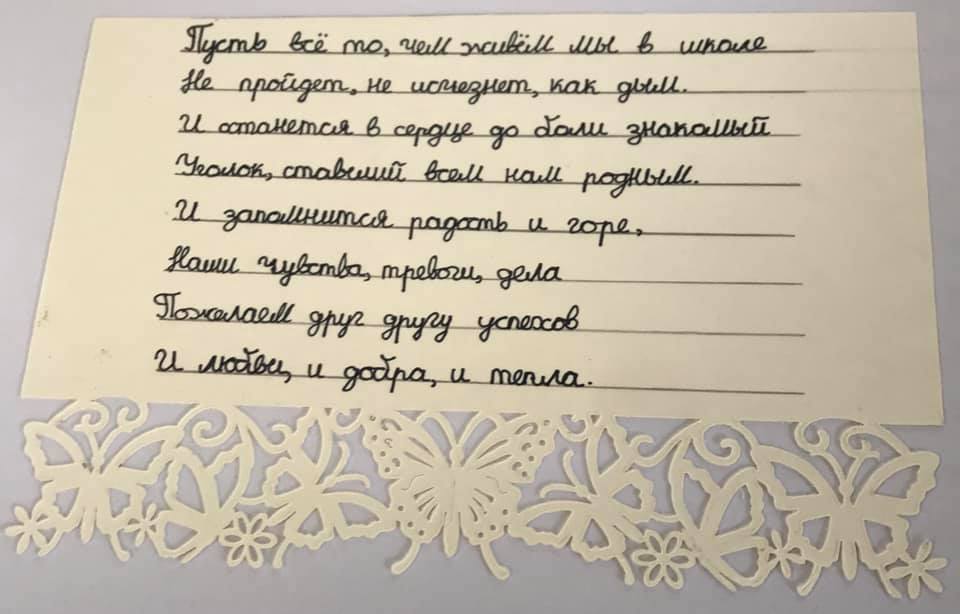 Пусть всё то, чем живём мы в школе
Не пройдет, не исчезнет, как дым.
И останется в сердце до боли знакомый
Уголок, ставший всем нам родным.
И запомнится радость и горе,
Наши чувства, тревоги, дела
Пожелаем друг другу успехов
И любви, и добра, и тепла.